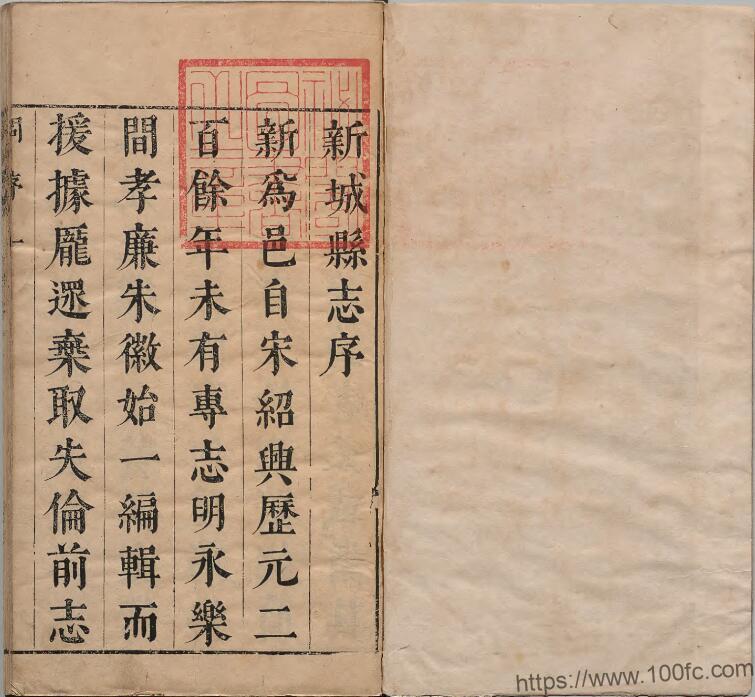 新城縣志序
新爲邑自宋紹興歷元二
百餘年未有專志明永樂
間孝廉朱徽始一編輯而
援據厖遝棄取失倫前志
序 一
https://www.100fc.com